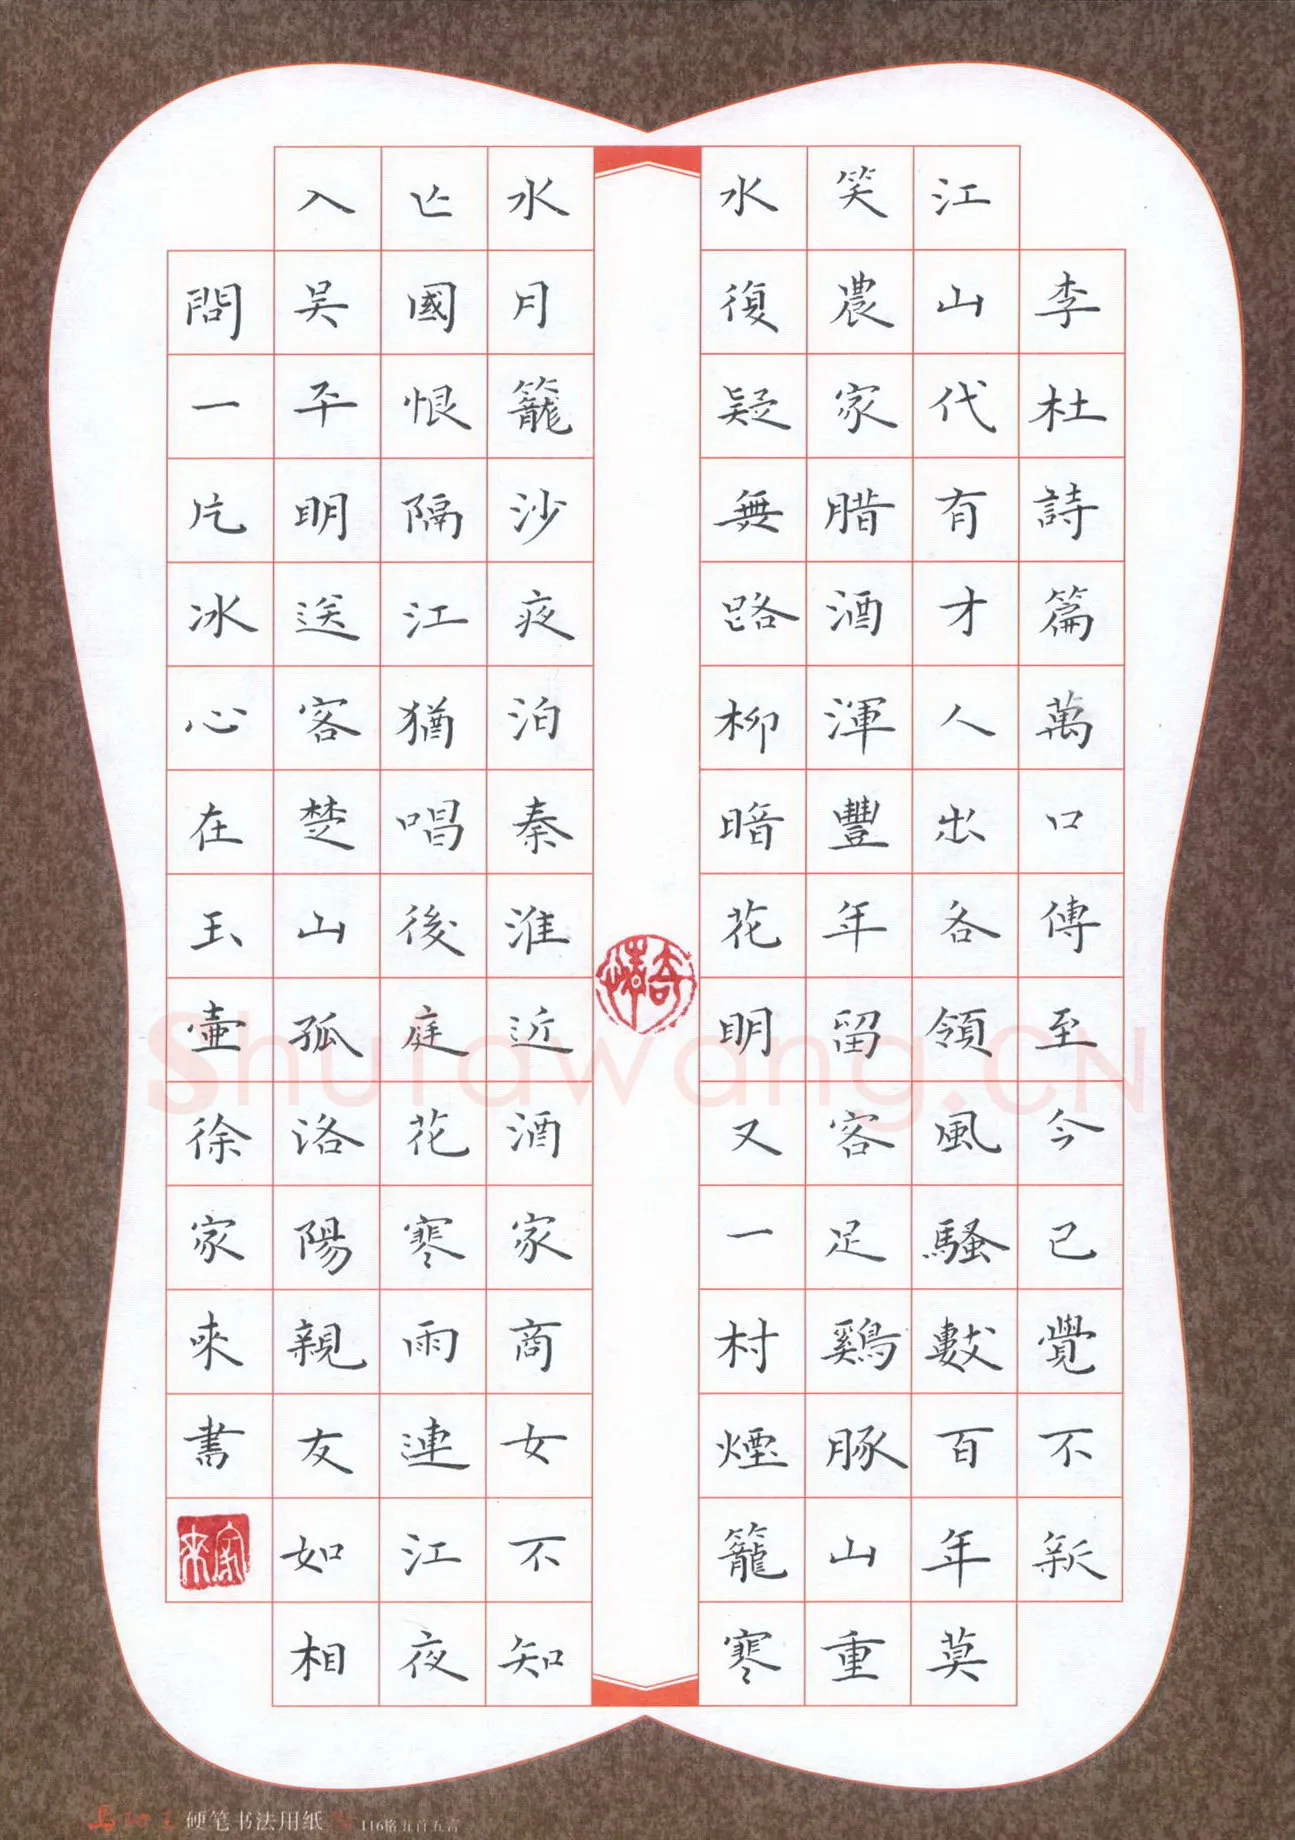 李杜詩篇萬口傳至今已覺不新
江山代有才人出各領風騷數百年莫
笑農家腊酒渾豐年留客足鷄豚山重
水復疑無路柳暗花明又一村煙籠寒
水月籠沙夜泊秦淮近酒家商女不知
亡國恨隔江猶唱後庭花寒雨連江夜
入吴平明送客楚山孤洛陽親友如相
問一片冰心在玉壺徐家来書
家来
Shufawang.CN
硬笔书法用纸